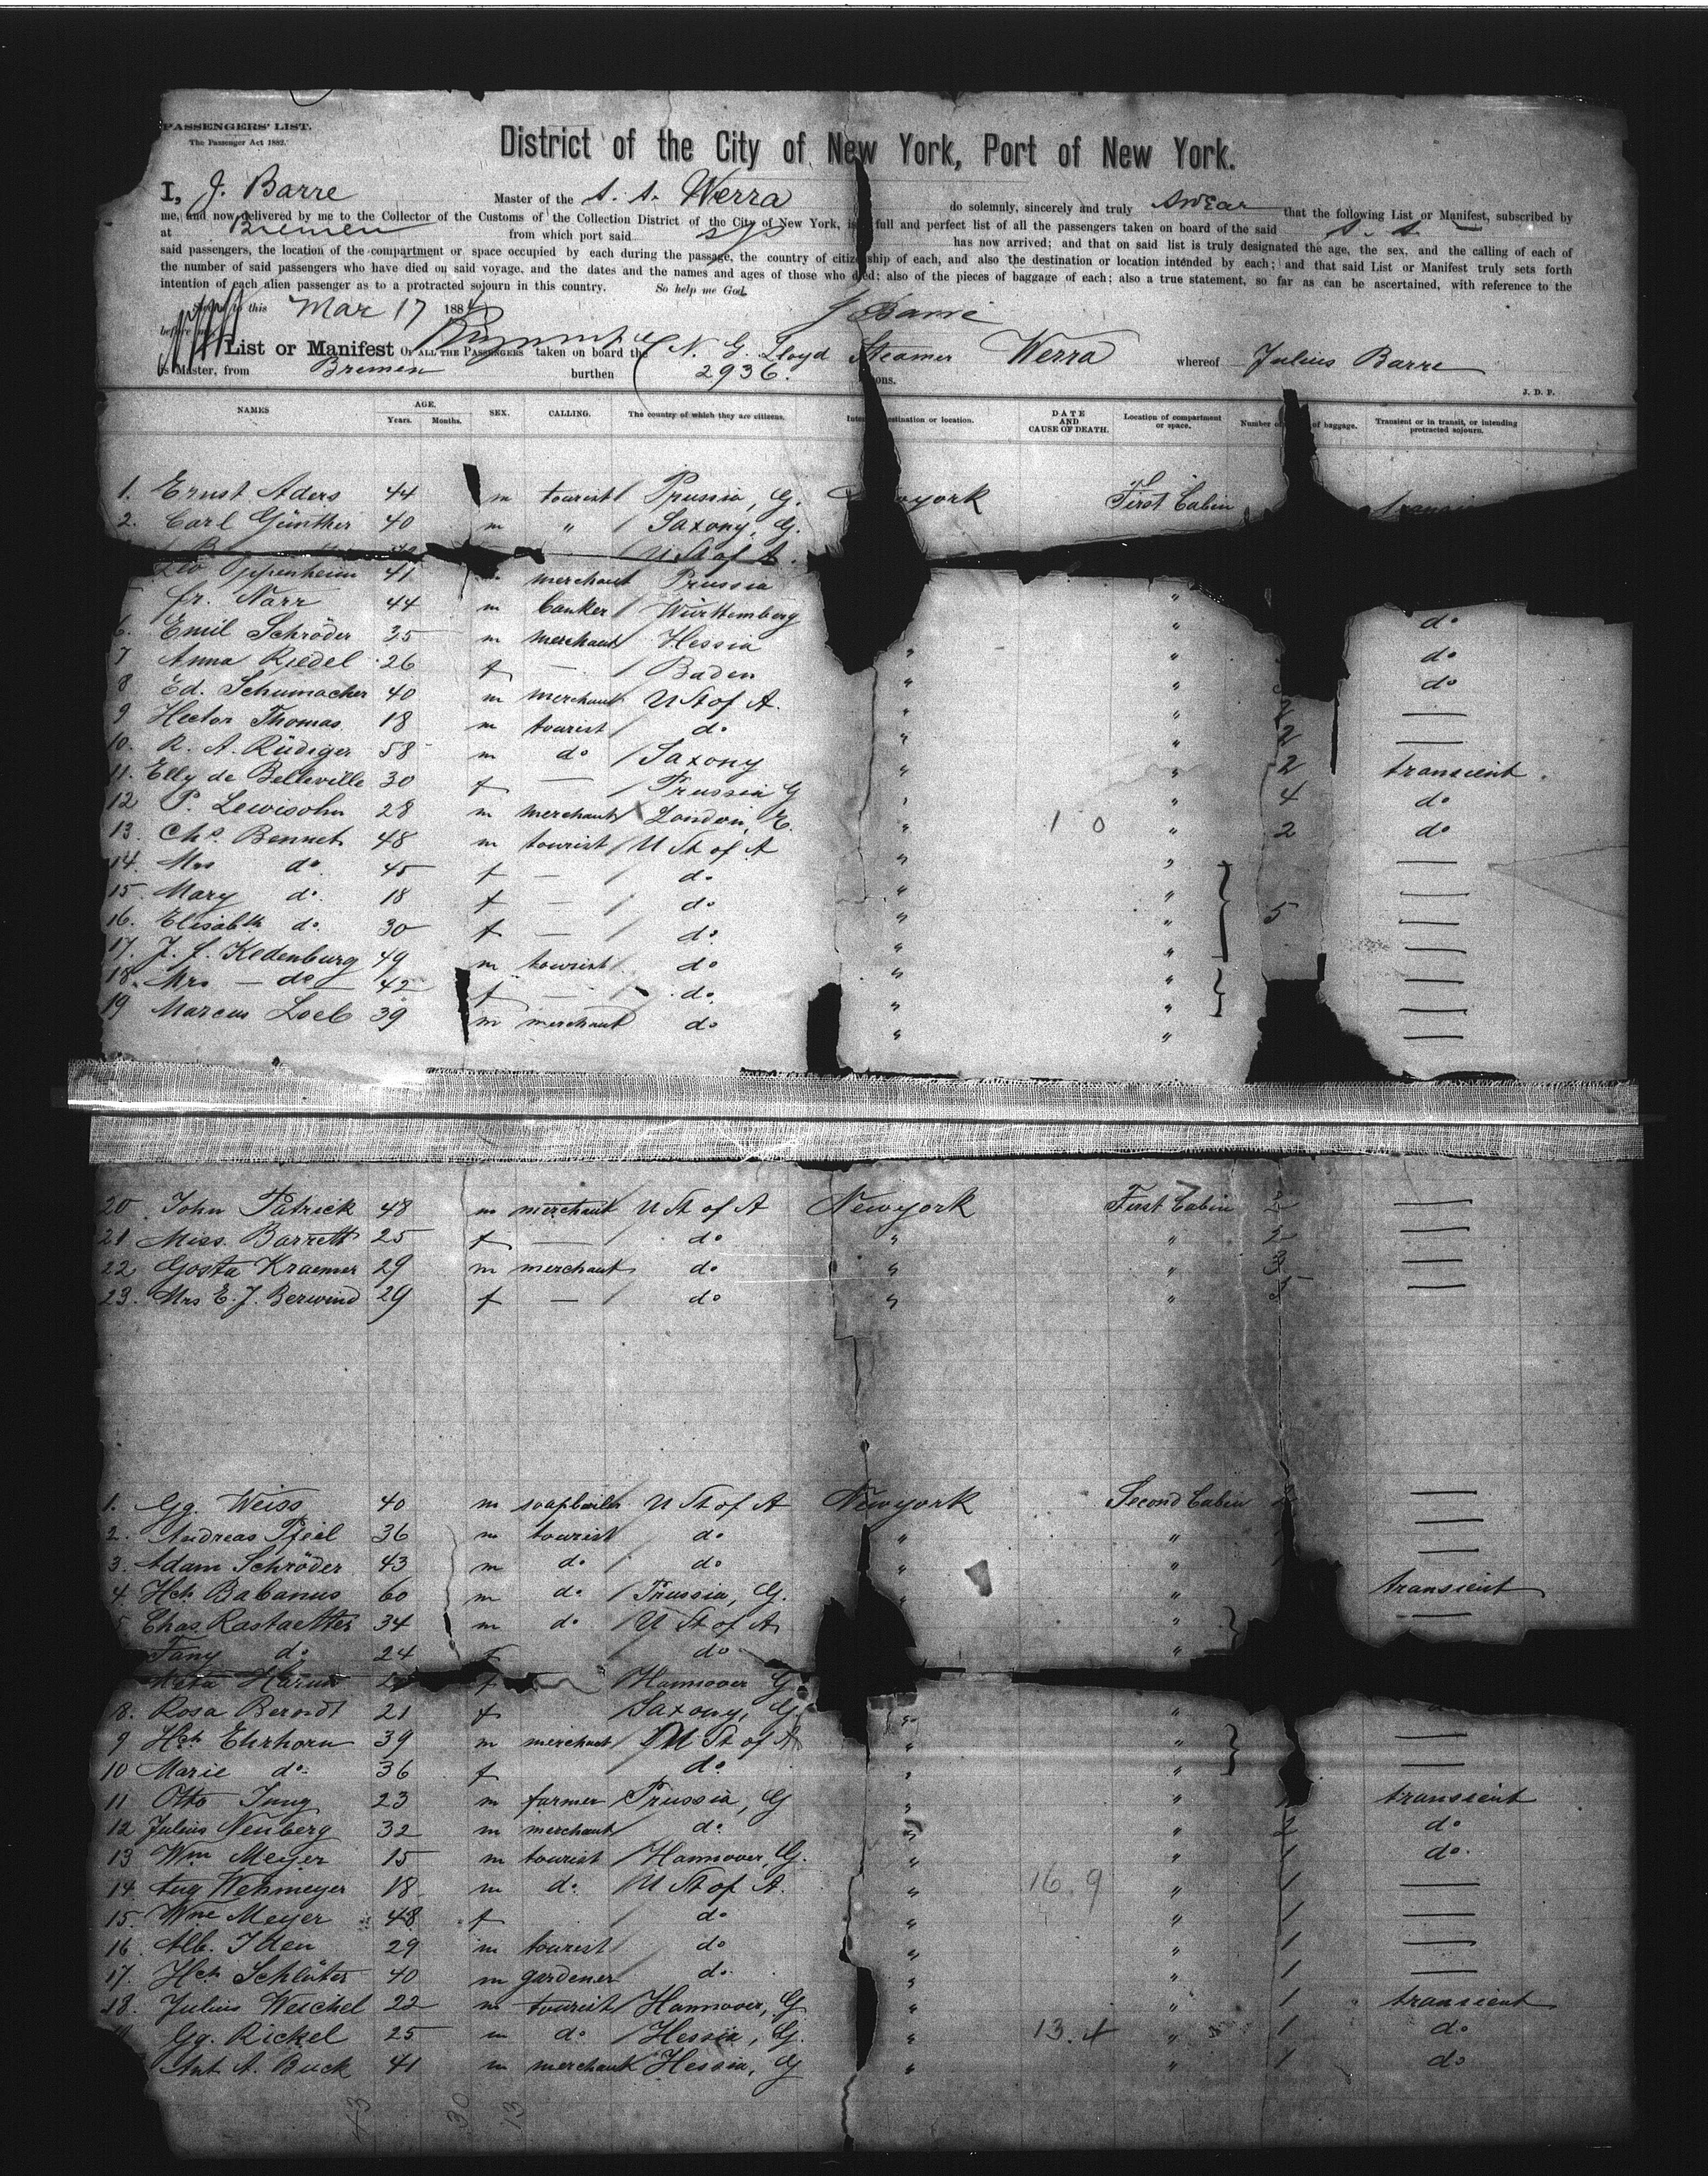 PASSENGERS' LIST.
The Passenger Act 1882.
District of the City of New York, Port of New York.
I, J. Barre Master of the S. S. Werra do solemnly, sincerely and truly swear that the following List or Manifest, subscribed by
me, and now delivered by me to the Collector of the Customs of the Collection District of the City of New York, is a full and perfect list of all the passengers taken on board of the said S. S.
at Bremen from which port said S/S has now arrived; and that on said list is truly designated the age, the sex, and the calling of each of
said passengers, the location of the compartment or space occupied by each during the passage, the country of citizenship of each, and also the destination or location intended by each; and that said List or Manifest truly sets forth
the number of said passengers who have died on said voyage, and the dates and the names and ages of those who died; also of the pieces of baggage of each; also a true statement, so far as can be ascertained, with reference to the
intention of each alien passenger as to a protracted sojourn in this country. So help me God.
to this Mar 17 1884 J Barre
before me
List or Manifest OF ALL THE PASSENGERS taken on board the N. G. Lloyd Steamer Werra whereof Julius Barre
is Master, from Bremen burthen 2936. tons.
J. D. P.
NAMES AGE. Years. Months. SEX. CALLING. The country of which they are citizens. destination or location. DATE AND CAUSE OF DEATH. Location of compartment or space. Number of baggage. Transient or in transit, or intending protracted sojourn.
1. Ernst Aders 44 m tourist Prussia, G. york First Cabin
2. Carl Günther 40 m " Saxony, G.
U St of A.
Leo Oppenheim 41 merchant Prussia
fr. Narr 44 m banker Württemberg " do
6. Emil Schröder 35 m merchant Hessia " " do
7 Anna Riedel 26 f — Baden " " do
8 Ed. Schumacher 40 m merchant U St of A. " " —
9 Hector Thomas 18 m tourist do " " 2 —
10. R. A. Rüdiger 58 m do Saxony " " 2 transient
11. Elly de Belleville 30 f — Prussia G " " 4 do
12 P. Lewisohn 28 m merchant London, E. " 1 0 " 2 do
13. Chs. Bennet 48 m tourist U St of A " " —
14. Mrs do 45 f — do " " —
15. Mary do. 18 f — do " " 5 —
16. Elisabth do. 30 f — do. " " —
17. J. f. Kedenburg 49 m tourist do " " —
18. Mrs — do — 42 f — do. " " —
19 Marcus Loeb 39 m merchant do " " —
20. John Patrick 48 m merchant U St of A Newyork First Cabin 2 —
21 Miss. Barrett 25 f — do " " 2 —
22 Gosta Kraemer 29 m merchant do " " 3 —
23. Mrs E. J. Berwind 29 f — do " " 5 —
1. Gg. Weiss 40 m soapboiler U St of A Newyork Second Cabin 2 —
2. Andreas Pfeil 36 m tourist do " " —
3. Adam Schröder 43 m do do " " —
4. Hch. Babanus 60 m do Prussia, G. " " transient
5 Chas. Rastaetter 34 m do U St of A " —
Fany do. 24 f do "
Meta f Hannover G
8. Rosa Berndt 21 f Saxony, G. " "
9 Hch Ehrhorn 39 m merchant U St of A " " —
10 Marie do. 36 f do. " " —
11 Otto Jung 23 m farmer Prussia, G " " 1 transient
12 Julius Neuberg 32 m merchant do. " " 2 do.
13 Wm Meyer 15 m tourist Hannover, G. " " 1 do.
14. Aug Wehmeyer 18 m do. U St of A. " 16. 9 " 1 —
15. Wne Meyer 48 f do " " 1 —
16. Alb. Iden 29 m tourist do " " 1 —
17. Hch Schlüter 40 m gardener do. " " 1 —
18. Julius Weichel 22 m tourist Hannover, G " " 1 transient
Gg. Rickel 25 m do Hessia, G. " 13. 4 " 1 do.
Ant A. Buck 41 m merchant Hessia, G " " 1 do
43 30 13